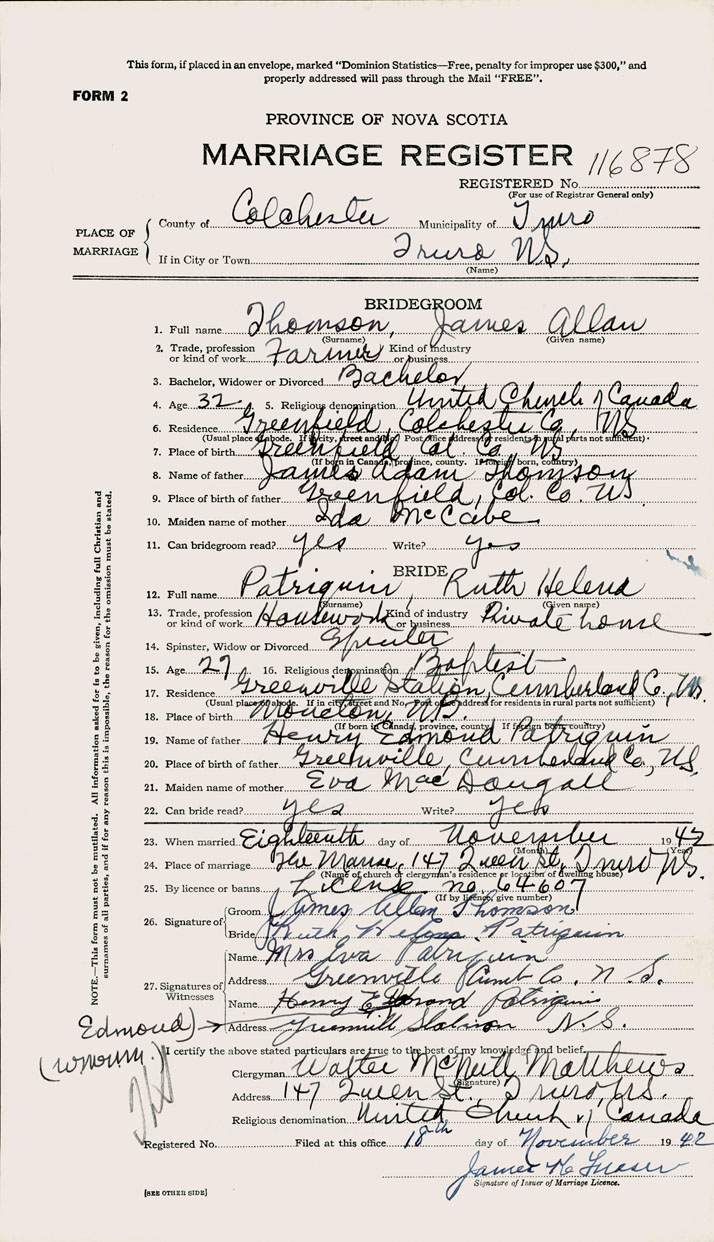 This form, if placed in an envelope, marked "Dominion Statistics—Free, penalty for improper use $300," and
properly addressed will pass through the Mail "FREE".
FORM 2
PROVINCE OF NOVA SCOTIA
MARRIAGE REGISTER 116878
REGISTERED No.
(For use of Registrar General only)
PLACE OF MARRIAGE
County of Colchester Municipality of Truro
If in City or Town Truro N.S.
(Name)
BRIDEGROOM
1. Full name Thomson, James Allan
(Surname) (Given name)
2. Trade, profession or kind of work Farmer Kind of industry or business
3. Bachelor, Widower or Divorced Bachelor
4. Age 32 5. Religious denomination United Church of Canada
6. Residence Greenfield, Colchester Co, NS
(Usual place of abode. If in city, street and No. Post office address for residents in rural parts not sufficient)
7. Place of birth Greenfield Col. Co. NS
(If born in Canada, province, county. If foreign born, country)
8. Name of father James Adam Thomson
9. Place of birth of father Greenfield, Col. Co. NS
10. Maiden name of mother Ida McCabe
11. Can bridegroom read? yes Write? yes
BRIDE
12. Full name Patriquin, Ruth Helena
(Surname) (Given name)
13. Trade, profession or kind of work Housework Kind of industry or business Private home
14. Spinster, Widow or Divorced
15. Age 27 16. Religious denomination Baptist
17. Residence Greenville Station, Cumberland Co., NS.
(Usual place of abode. If in city street and No. Post office address for residents in rural parts not sufficient)
18. Place of birth Moncton, N.B.
(If born in Canada, province, county. If foreign born, country)
19. Name of father Henry Edmond Patriquin
20. Place of birth of father Greenville, Cumberland Co, NS.
21. Maiden name of mother Eva MacDougall
22. Can bride read? yes Write? yes
23. When married Eighteenth day of November 1942
(Month) (Year)
24. Place of marriage The Manse, 147 Queen St., Truro NS.
(Name of church or clergyman's residence or location of dwelling house)
25. By licence or banns License no. 64607
(If by licence, give number)
26. Signature of
Groom James Allan Thomson
Bride Ruth Helena Patriquin
27. Signatures of Witnesses
Name Mrs Eva Patriquin
Address Greenville Cumb Co. N.S.
Name Henry Edmond Patriquin
Edmond) → Address Greenville Station N.S.
I certify the above stated particulars are true to the best of my knowledge and belief.
Clergyman Walter McNutt Matthews
(Signature)
Address 147 Queen St., Truro NS.
Religious denomination United Church of Canada
Registered No. Filed at this office 18th day of November 1942
Signature of Issuer of Marriage Licence.
[SEE OTHER SIDE]
NOTE.—This form must not be mutilated. All information asked for is to be given, including full Christian and
surnames of all parties, and if for any reason this is impossible, the reason for the omission must be stated.